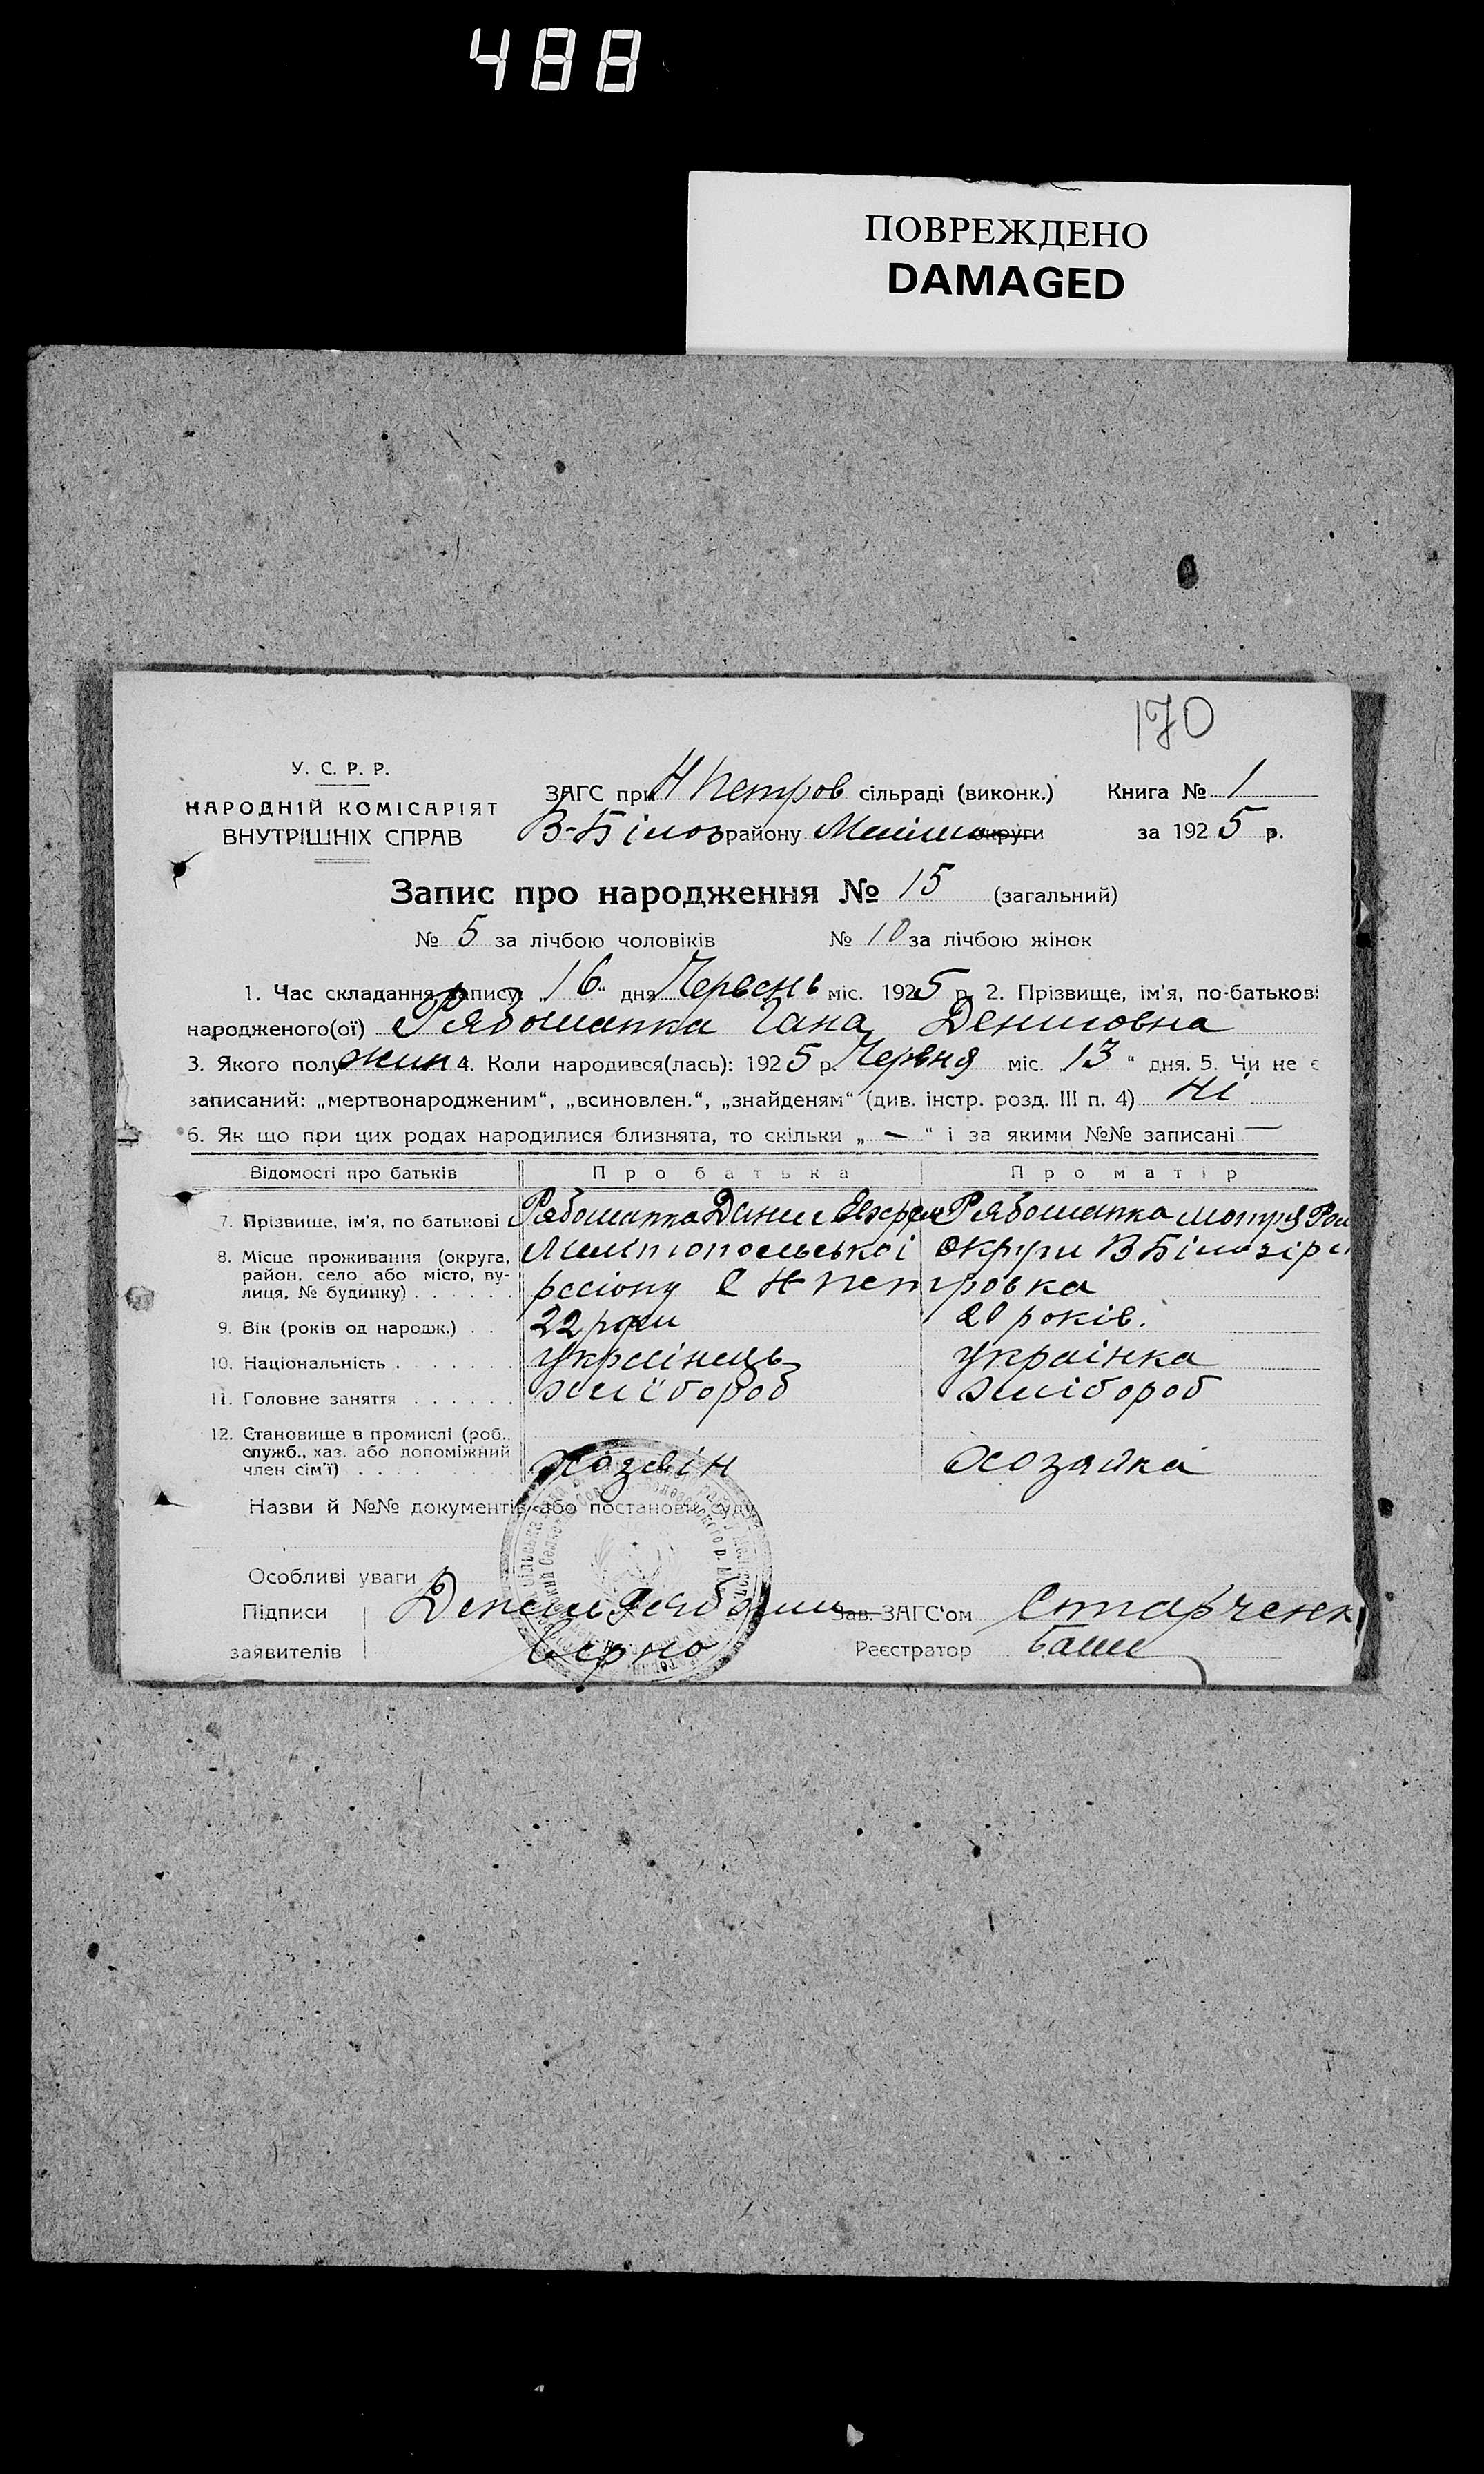 488
ПОВРЕЖДЕНО
DAMAGED
170
У. С. Р. Р.
НАРОДНІЙ КОМІСАРІЯТ
ВНУТРІШНІХ СПРАВ
ЗАГС при Н Петров сільраді (виконк.)
В-Білоз району Меліт округи
Книга № 1
за 1925 р.
Запис про народження № 15 (загальний)
№ 5 за лічбою чоловіків № 10 за лічбою жінок
1. Час складання запису: „16“ дня Червень міс. 1925 р. 2. Прізвище, ім'я, по-батькові
народженого(ої) Рябошапка Гана Денисовна
3. Якого полу жин 4. Коли народився(лась): 1925 р. Червня міс. 13 “ дня. 5. Чи не є
записаний: „мертвонародженим“, „всиновлен.“, „знайденям“ (див. інстр. розд. III п. 4) Ні
6. Як що при цих родах народилися близнята, то скільки „ — “ і за якими №№ записані —
Відомості про батьків Про батька Про матір
7. Прізвище, ім'я, по батькові Рябошапка Денис Рябошапка Мотря Ром
8. Місце проживання (округа, район, село або місто, вулиця, № будинку) Мелітопольської округи В Білозірс
району с Н Петровка
9. Вік (років од народж.) 22 роки 20 років.
10. Національність українець українка
11. Головне заняття хлібороб хлібороб
12. Становище в промислі (роб.,
служб., хаз. або допоміжний
член сім'ї) хозяін хозяйка
Назви й №№ документів або постанови суду
Особливі уваги
Підписи заявителів Денис Рябошап
Зав. ЗАГС'ом Старченк
Верно
Реєстратор